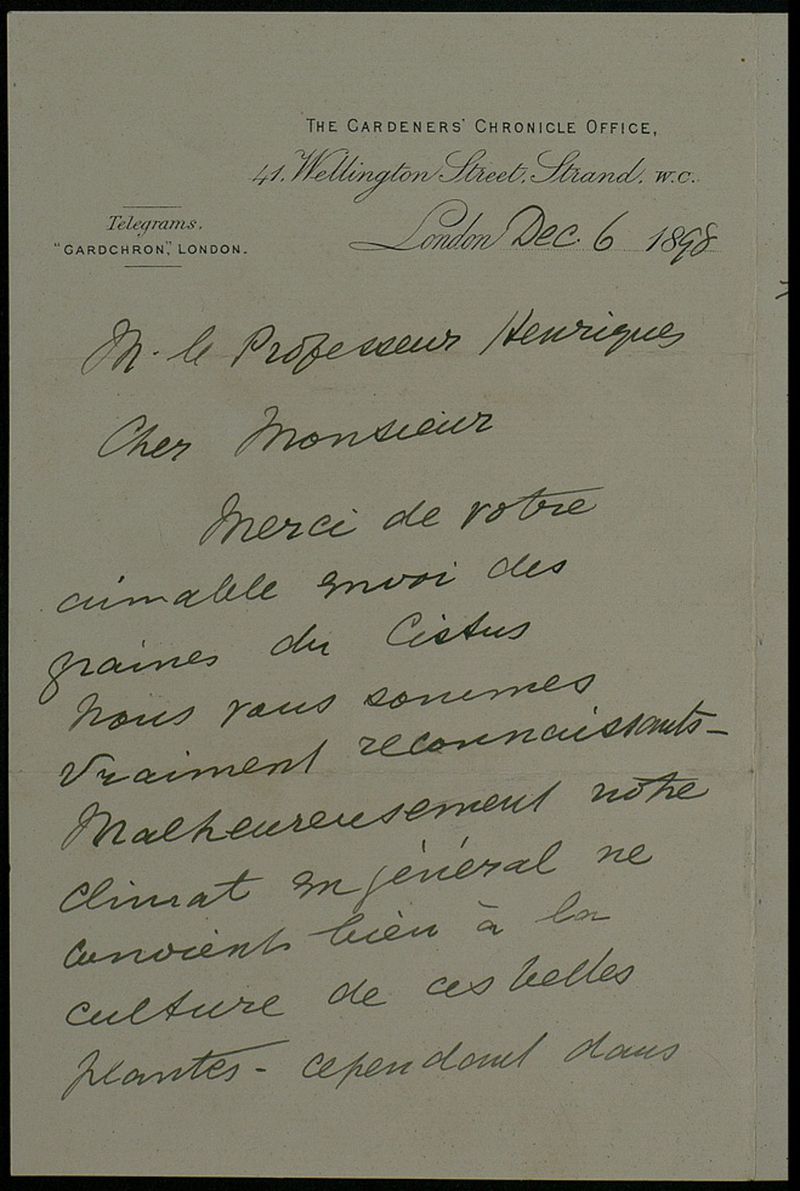 THE GARDENERS' CHRONICLE OFFICE,
41, Wellington Street, Strand, W.C.
Telegrams,
"GARDCHRON," LONDON.
London Dec. 6 1898
M. le Professeur Henriques
Cher Monsieur
Merci de votre
aimable envoi des
graines du Cistus
Nous vous sommes
vraiment reconnaissants -
Malheureusement notre
climat en général ne
convient bien à la
culture de ces belles
plantes - cependant dans